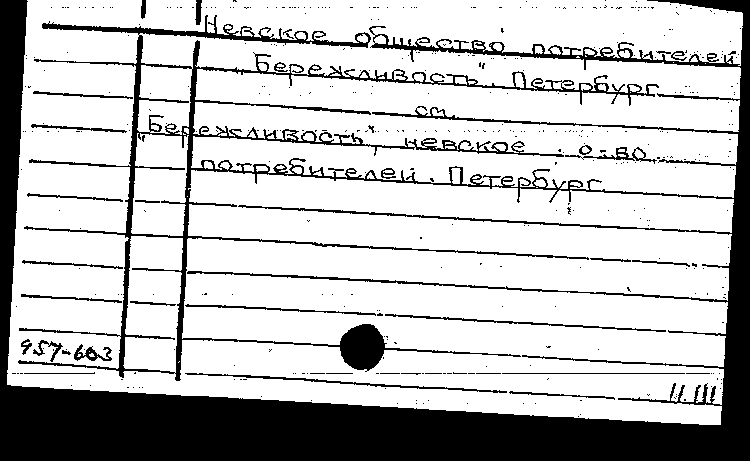 Невское общество потребителей
„Бережливость". Петербург
см.
„Бережливость", невское о-во
потребителей. Петербург
957-603
II.III